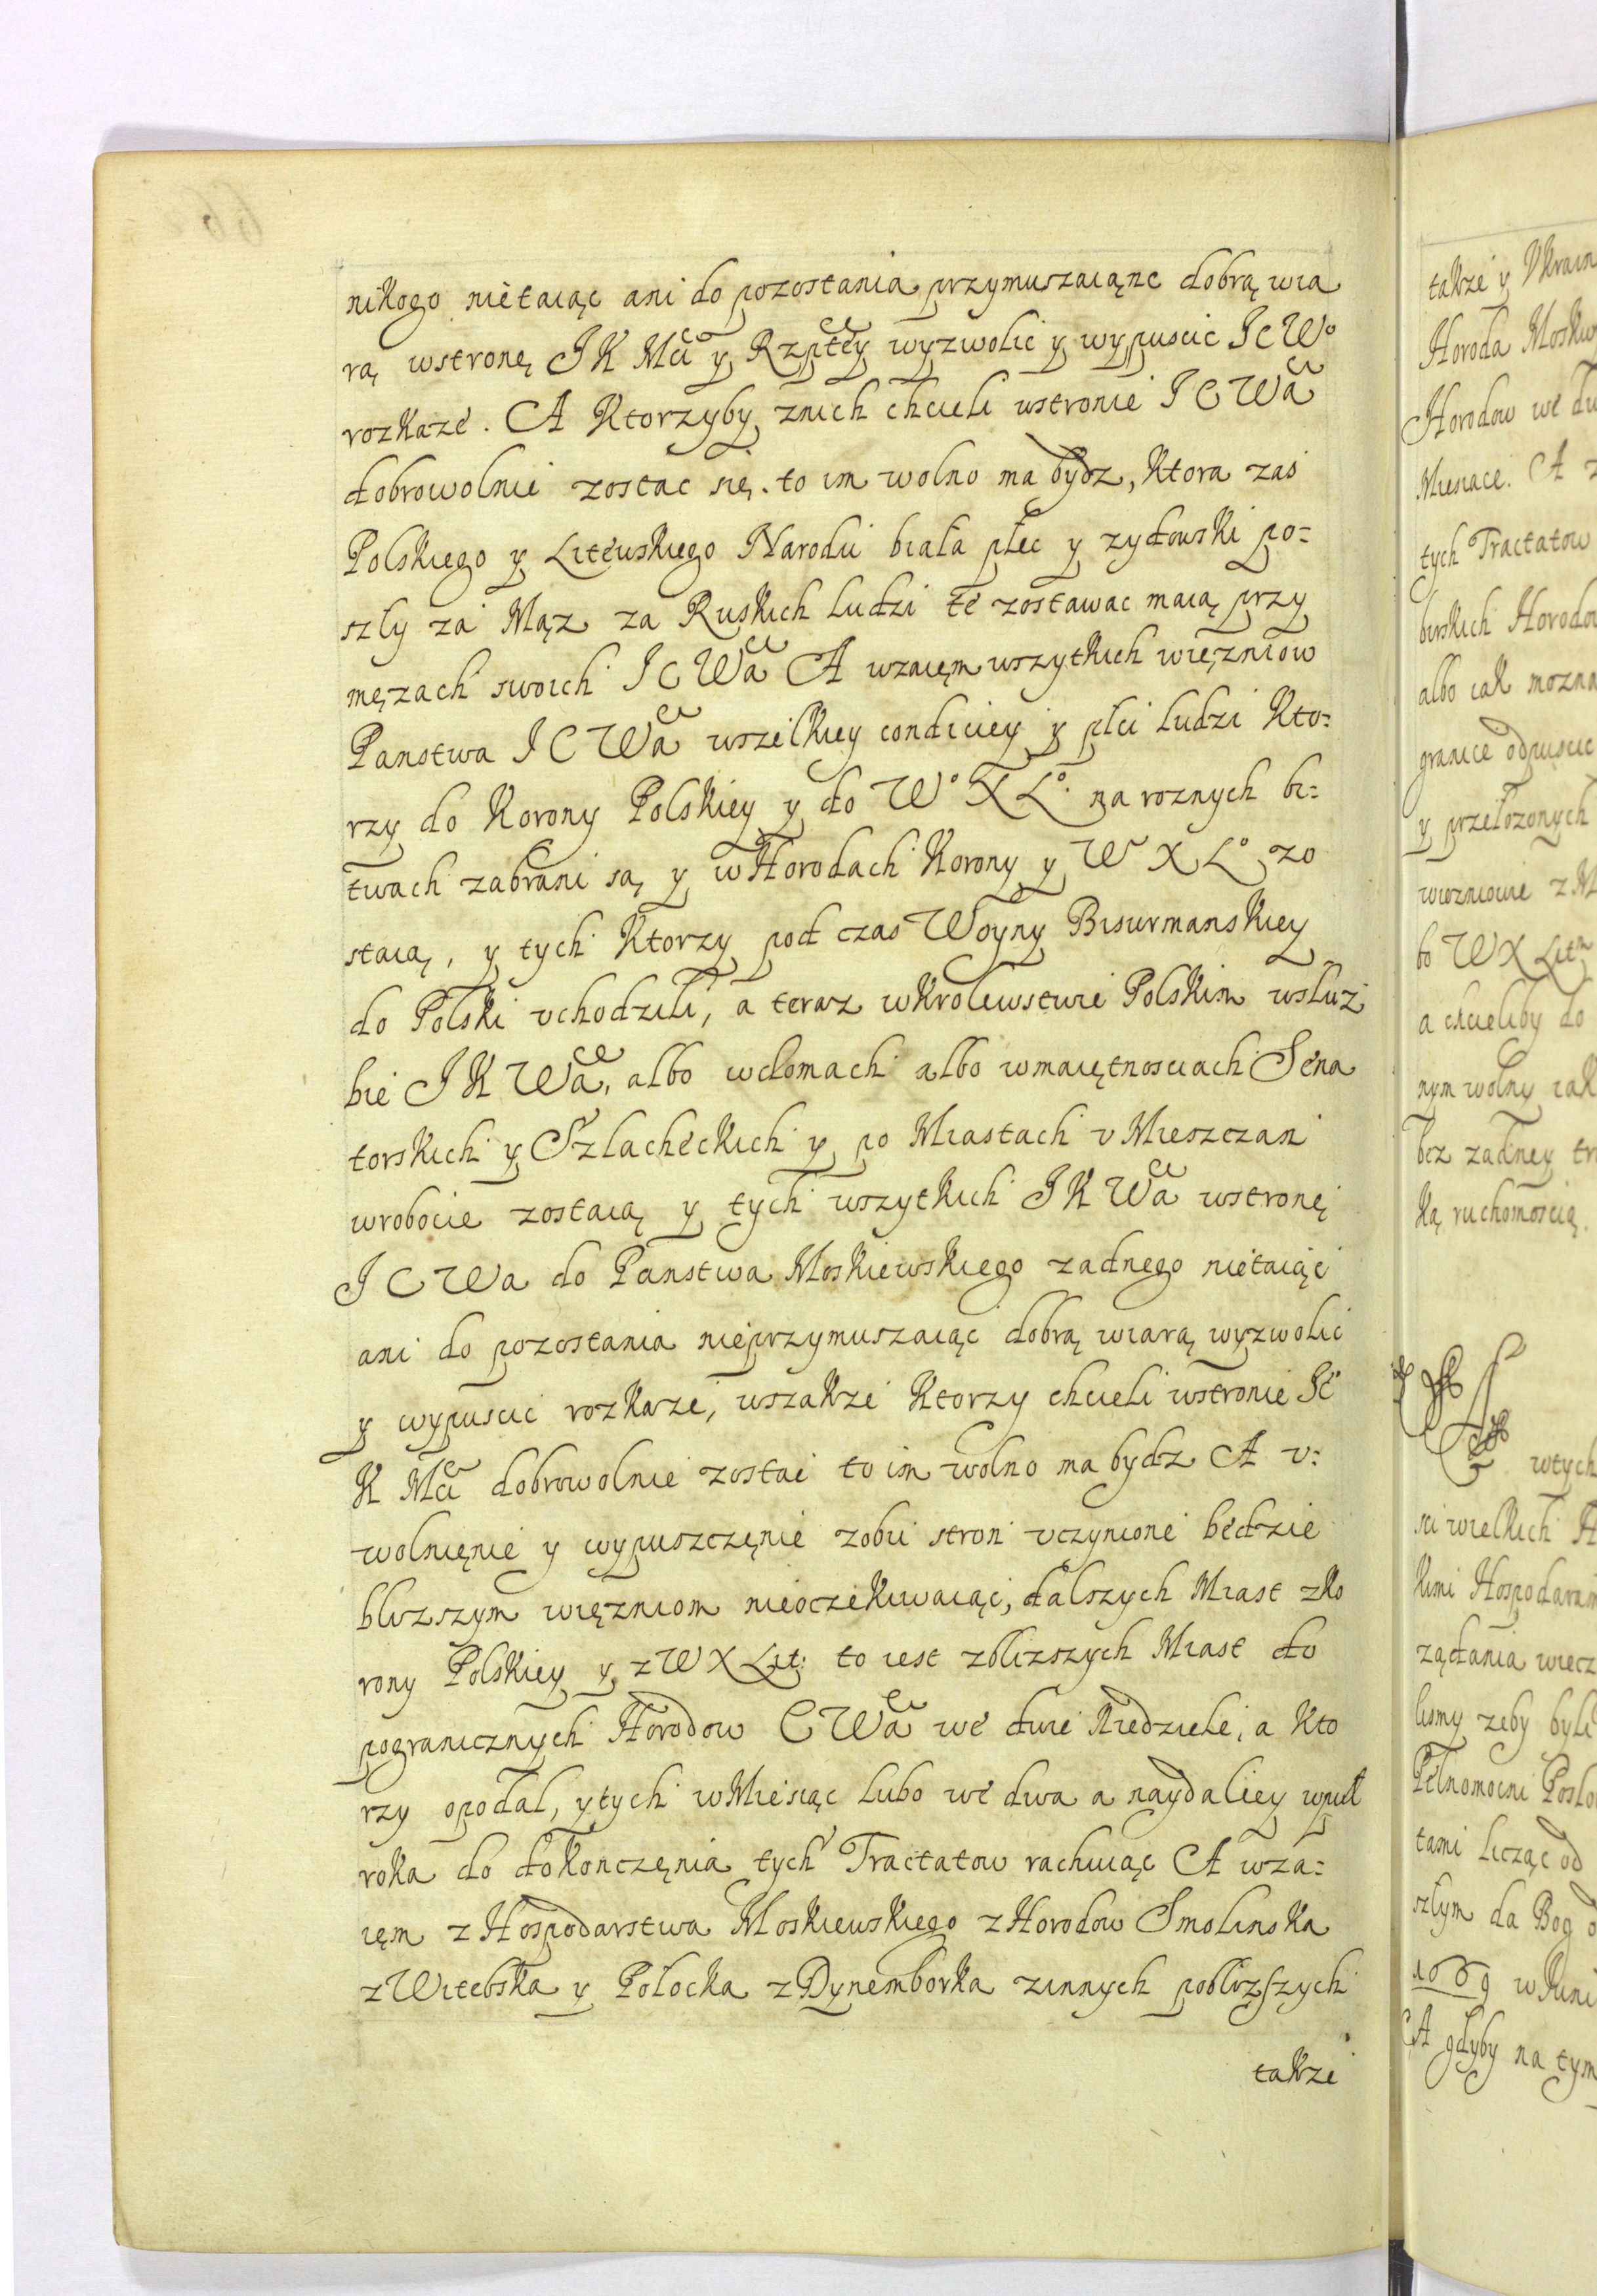 nikogo nietaiąc ani do pozostania przymuszaiąnc dobrą wia
rą wstronę JK Mci y Rzptey wyzwolic y wypuscic JCW°
rozkaze. A Ktorzyby znich chcieli wstronie JCWa
dobrowolnie zostac się. to im wolno ma bydz, Ktora zas
Polskiego y Litewskiego Narodu biała płec y zydowski po=
szly za Mąz za Ruskich ludzi te zostawac maią przy
męzach swoich JCWa A wzaięm wszytkich więzniow
Panstwa JCWa wszelkiey condiciey y płci ludzi Kto=
rzy do Korony Polskiey y do W° X L° na roznych bi=
twach zabrani są y w Horodach Korony y W X L° zo
staią, y tych Ktorzy pod czas Woyny Bisurmanskiey
do Polski vchodzili, a teraz wKrolewstwie Polskim wsłuz
bie JKWa, albo wdomach albo wmaiętnosciach Sena
torskich y Szlacheckich y po Miastach v Mieszczan
wrobocie zostaią y tych wszytkich JKWa wstronę
JCWa do Panstwa Moskiewskiego zadnego nietaiąc
ani do pozostania nieprzymuszaiąc dobrą wiarą wyzwolic
y wypuscic rozkaze, wszakze Ktorzy chcieli wstronie Je°
K Mci dobrowolnie zostac to im wolno ma bydz A v=
wolnięnie y wypuszczęnie zobu stron vczynione będzie
blizszym więzniom nieoczekiwaiąc, dalszych Miast zko
rony Polskiey y z W X Lit: to iest zblizszych Miast do
pogranicznych Horodow CWa we dwie Niedziele, a Kto
rzy opodal, y tych wMiesiąc lubo we dwa a naydaliey wpuł
roka do dokonczęnia tych Tractatow rachuiąc A wza=
ięm z Hospodarstwa Moskiewskiego z Horodow Smolinska
z Witebska y Połocka z Dynemborka zinnych poblizszych
takze
takze y Vkrain
Horoda Moskw
Horodow we dw
Miesiace. A z
tych Tractatow
birskich Horodow
albo iak mozna
granice odpuscic
y przełozonych
wiezniowie z M
bo W X Litn
a chcieliby do
nym wolny iak
bez zadney tr
ką ruchomoscią.
wtych
sci wielkich H
kimi Hospodaram
ządania wiecz
lismy zeby byli
Pełnomocni Posło
tami licząc od
szlym da Bog
1669 w Iuni
A gdyby na tym